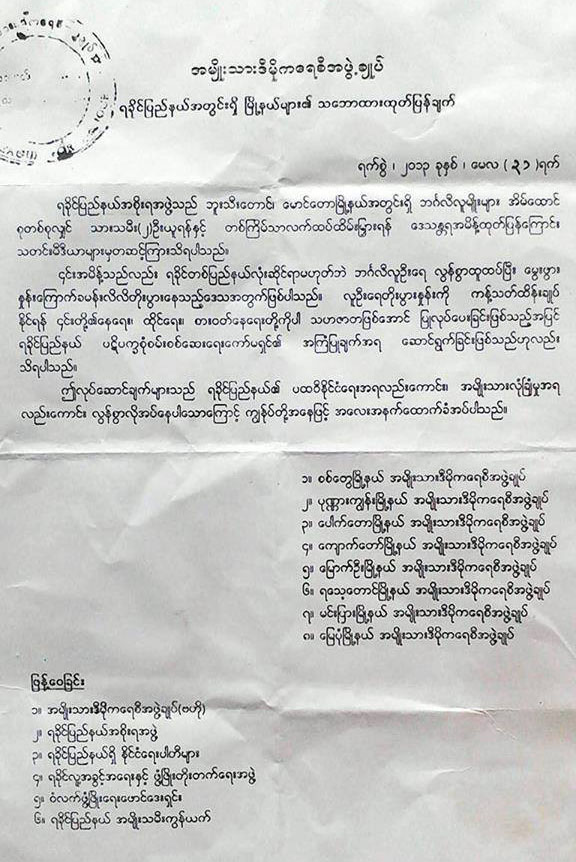 အမျိုးသားဒီမိုကရေစီအဖွဲ့ချုပ်
ရခိုင်ပြည်နယ်အတွင်းရှိ မြို့နယ်များ၏ သဘောထားထုတ်ပြန်ချက်
ရက်စွဲ ၊ ၂၀၁၃ ခုနှစ် ၊ မေလ ( ၃၁ )ရက်
ရခိုင်ပြည်နယ်အစိုးရအဖွဲ့သည် ဘူးသီးတောင်၊ မောင်တောမြို့နယ်အတွင်းရှိ ဘင်္ဂလီလူမျိုးများ အိမ်ထောင်
စုတစ်စုလျှင် သားသမီး(၂)ဦးယူရန်နှင့် တစ်ကြိမ်သာလက်ထပ်ထိမ်းမြှားရန် ဒေသန္တရအမိန့်ထုတ်ပြန်ကြောင်း
သတင်းမီဒီယာများမှတဆင့်ကြားသိရပါသည်။
၎င်းအမိန့်သည်လည်း ရခိုင်တစ်ပြည်နယ်လုံးဆိုင်ရာမဟုတ်ဘဲ ဘင်္ဂလီလူဦးရေ လွန်စွာထူထပ်ပြီး မွေးဖွား
နှုန်းကြောက်ခမန်းလိလိတိုးပွားနေသည့်ဒေသအတွက်ဖြစ်ပါသည်။ လူဦးရေတိုးပွားနှုန်းကို ကန့်သတ်ထိန်းချုပ်
နိုင်ရန် ၎င်းတို့၏နေရေး၊ ထိုင်ရေး၊ စားဝတ်နေရေးတို့ကိုပါ သဟဇာတဖြစ်အောင် ပြုလုပ်ပေးခြင်းဖြစ်သည့်အပြင်
ရခိုင်ပြည်နယ် ပဋိပက္ခစုံစမ်းစစ်ဆေးရေးကော်မရှင်၏ အကြံပြုချက်အရ ဆောင်ရွက်ခြင်းဖြစ်သည်ဟုလည်း
သိရပါသည်။
ဤလုပ်ဆောင်ချက်များသည် ရခိုင်ပြည်နယ်၏ ပထဝီနိုင်ငံရေးအရလည်းကောင်း၊ အမျိုးသားလုံခြုံမှုအရ
လည်းကောင်း လွန်စွာလိုအပ်နေပါသောကြောင့် ကျွန်ုပ်တို့အနေဖြင့် အလေးအနက်ထောက်ခံအပ်ပါသည်။
၁။ စစ်တွေမြို့နယ် အမျိုးသားဒီမိုကရေစီအဖွဲ့ချုပ်
၂။ ပုဏ္ဏားကျွန်းမြို့နယ် အမျိုးသားဒီမိုကရေစီအဖွဲ့ချုပ်
၃။ ပေါက်တောမြို့နယ် အမျိုးသားဒီမိုကရေစီအဖွဲ့ချုပ်
၄။ ကျောက်တော်မြို့နယ် အမျိုးသားဒီမိုကရေစီအဖွဲ့ချုပ်
၅။ မြောက်ဦးမြို့နယ် အမျိုးသားဒီမိုကရေစီအဖွဲ့ချုပ်
၆။ ရသေ့တောင်မြို့နယ် အမျိုးသားဒီမိုကရေစီအဖွဲ့ချုပ်
၇။ မင်းပြားမြို့နယ် အမျိုးသားဒီမိုကရေစီအဖွဲ့ချုပ်
၈။ မြေပုံမြို့နယ် အမျိုးသားဒီမိုကရေစီအဖွဲ့ချုပ်
ဖြန့်ဝေခြင်း
၁။ အမျိုးသားဒီမိုကရေစီအဖွဲ့ချုပ်(ဗဟို)
၂။ ရခိုင်ပြည်နယ်အစိုးရအဖွဲ့
၃။ ရခိုင်ပြည်နယ်ရှိ နိုင်ငံရေးပါတီများ
၄။ ရခိုင်လူ့အခွင့်အရေးနှင့် ဖွံ့ဖြိုးတိုးတက်ရေးအဖွဲ့
၅။ ဝံလက်ဖွံ့ဖြိုးရေးဖောင်ဒေးရှင်း
၆။ ရခိုင်ပြည်နယ် အမျိုးသမီးကွန်ယက်